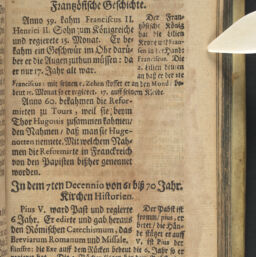 Französische Geschichte.
Anno 59. kahm Franciscus II.
Henrici II. Sohn zum Königreiche
und regierete 15. Monat. Er be
kahm ein Geschwür im Ohr darü
ber er die Augen zuthun müssen: da
er nur 17. Jahr alt war.
Der Fran-
zösische König
hat die Lilien
Krone und
sen in der Hand:
Franciscus. Die
2. Lilien deuten
an daß er der 2te
Franciscus: mit seinem
deut 15. Monat so er regieret. 17. auf seinem
Anno 60. bekahmen die Refor-
mirten zu Tours, weil sie beym
Thor Hugonis zusammen kahmen/
den Nahmen/ daß man sie Huge-
notten nennete. Mit welchem Nah-
men die Reformirte in Franckreich
von den Papisten bißher genennet
worden.
In dem 7ten Decennio von 61 biß 70 Jahr.
Kirchen Historien.
Pius V. ward Papst und regierte
6 Jahr. Er edirte und gab heraus
den Römischen Catechismum, das
Breviarum Romanum und Missale.
Der Papst ist
fromm/ pius, er
betet/ die Hän-
de
V. ist Pius der
fünffte: die Sechs auff dem Rücken bedeut die 6. Jahr so er